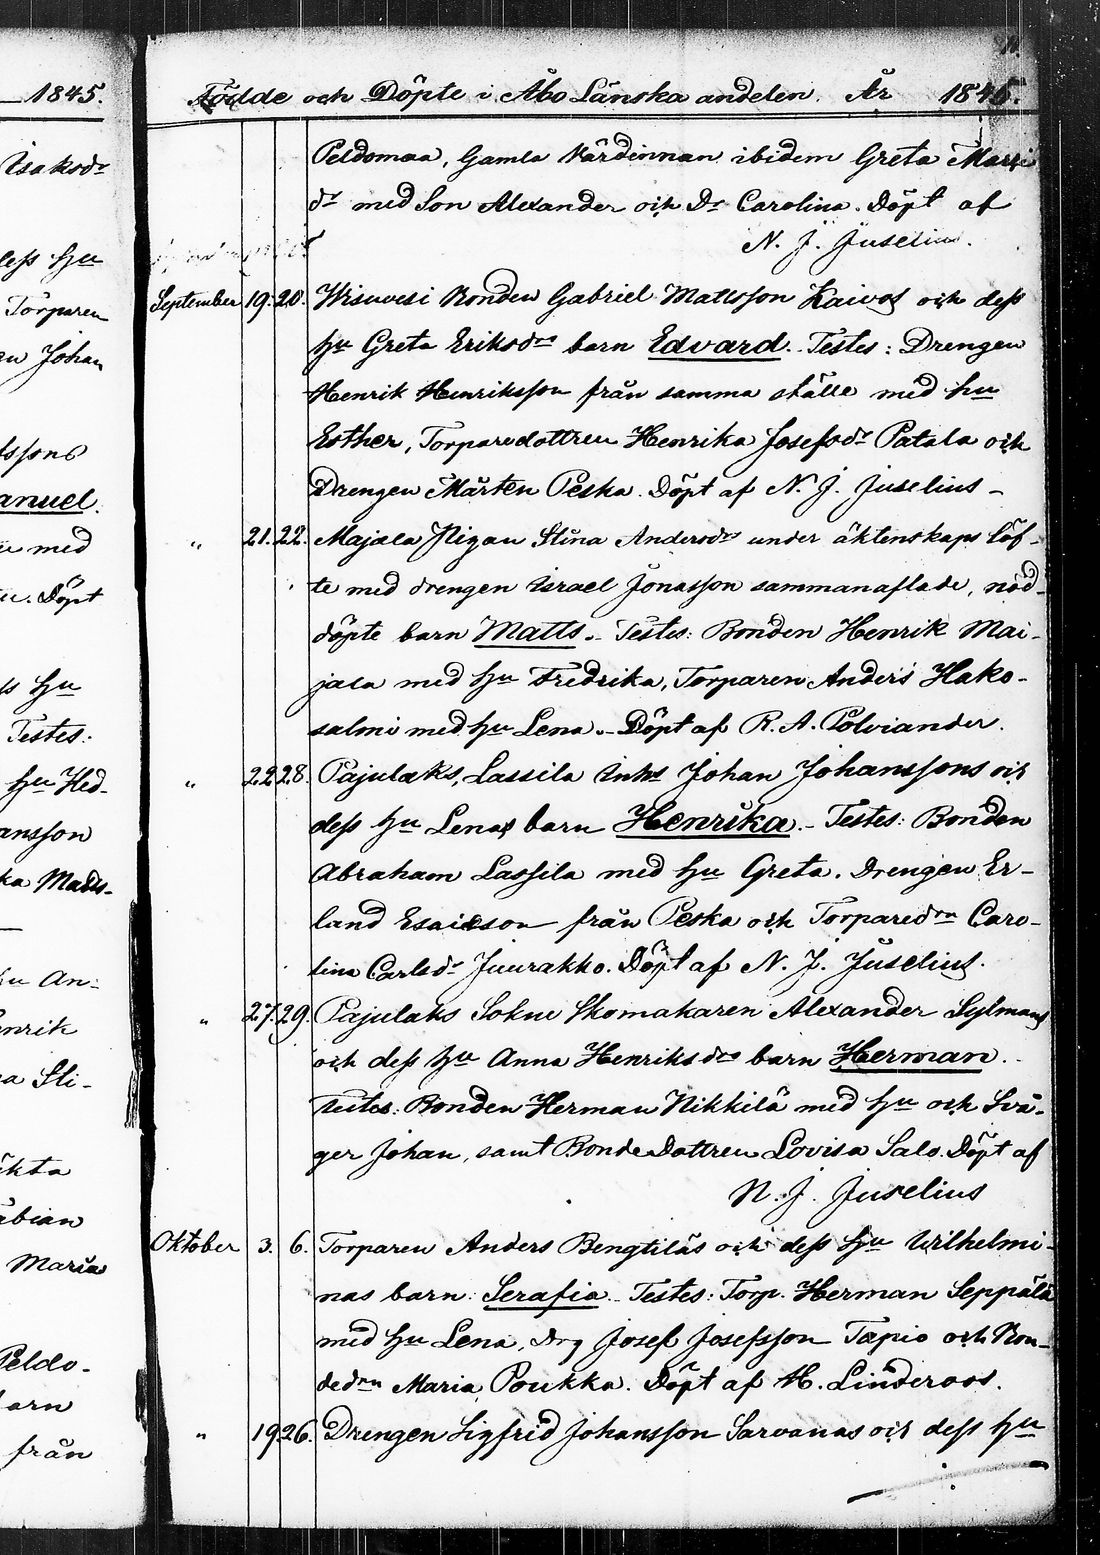 1845.
Isaksdr
dess hu
Torparen
en Johan
anuel.
med
Döpt
hu
Testes:
hu Hed-
ansson
ka Matts-
hu An-
enrik
na Sti-
äkta
abian
Maria
Peldo-
barn
från
Födde och Döpte i Åbo Länska andelen. År 1845.
Peldomaa, Gamla Värdinnan ibidem Greta
dr med Son Alexander och Dr Carolina. Döpt af
N. J. Juselius.
September 19. 20. Wisuvesi Bonden Gabriel Mattsson Kaivos och dess
hu Greta Eriksdrs barn Edvard. Testes: Drengen
Henrik Henriksson från samma ställe med hu
Esther, Torparedottren Henrika Josefsdr Patala och
Drengen Mårten Peska. Döpt af N. J. Juselius -
" 21. 22. Majala Pigan Stina Andersdrs under äktenskaps löf-
te med drengen Israel Jonasson sammanaflade, nöd-
döpte barn Matts. Testes: Bonden Henrik Mai-
jala med hu Fredrika, Torparen Anders Hako-
salmi med hu Lena. Döpt af R. A. Polviander.
" 22. 28. Pajulaks, Lassila Inhs Johan Johanssons och
dess hu Lenas barn Henrika. Testes: Bonden
Abraham Lassila med hu Greta. Drengen Er-
land Esaiesson från Peska och Torparedrn Caro-
lina Carlsdr Juurakko. Döpt af N. J. Juselius.
" 27. 29. Pajulaks Sokne Skomakaren Alexander Sylmans
och dess hu Anna Henriksdrs barn Herman.
Testes: Bonden Herman Nikkilä med hu och Svå-
ger Johan, samt Bonde Dottren Lovisa Salo. Döpt af
N. J. Juselius
Oktober 3. 6. Torparen Anders Bengtiläs och dess hu Wilhelmi-
nas barn: Serafia. Testes: Torp. Herman Seppälä
med hu Lena, drg Josef Josefsson Tapio och Bon-
dedrn Maria Poukka. Döpt af H. Linderoos.
" 19. 26. Drengen Sigfrid Johansson Sarvanas och dess hu